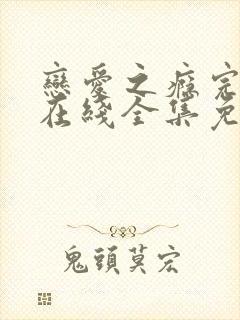 戀愛之癮完
在綫全集免
鬼頭莫宏